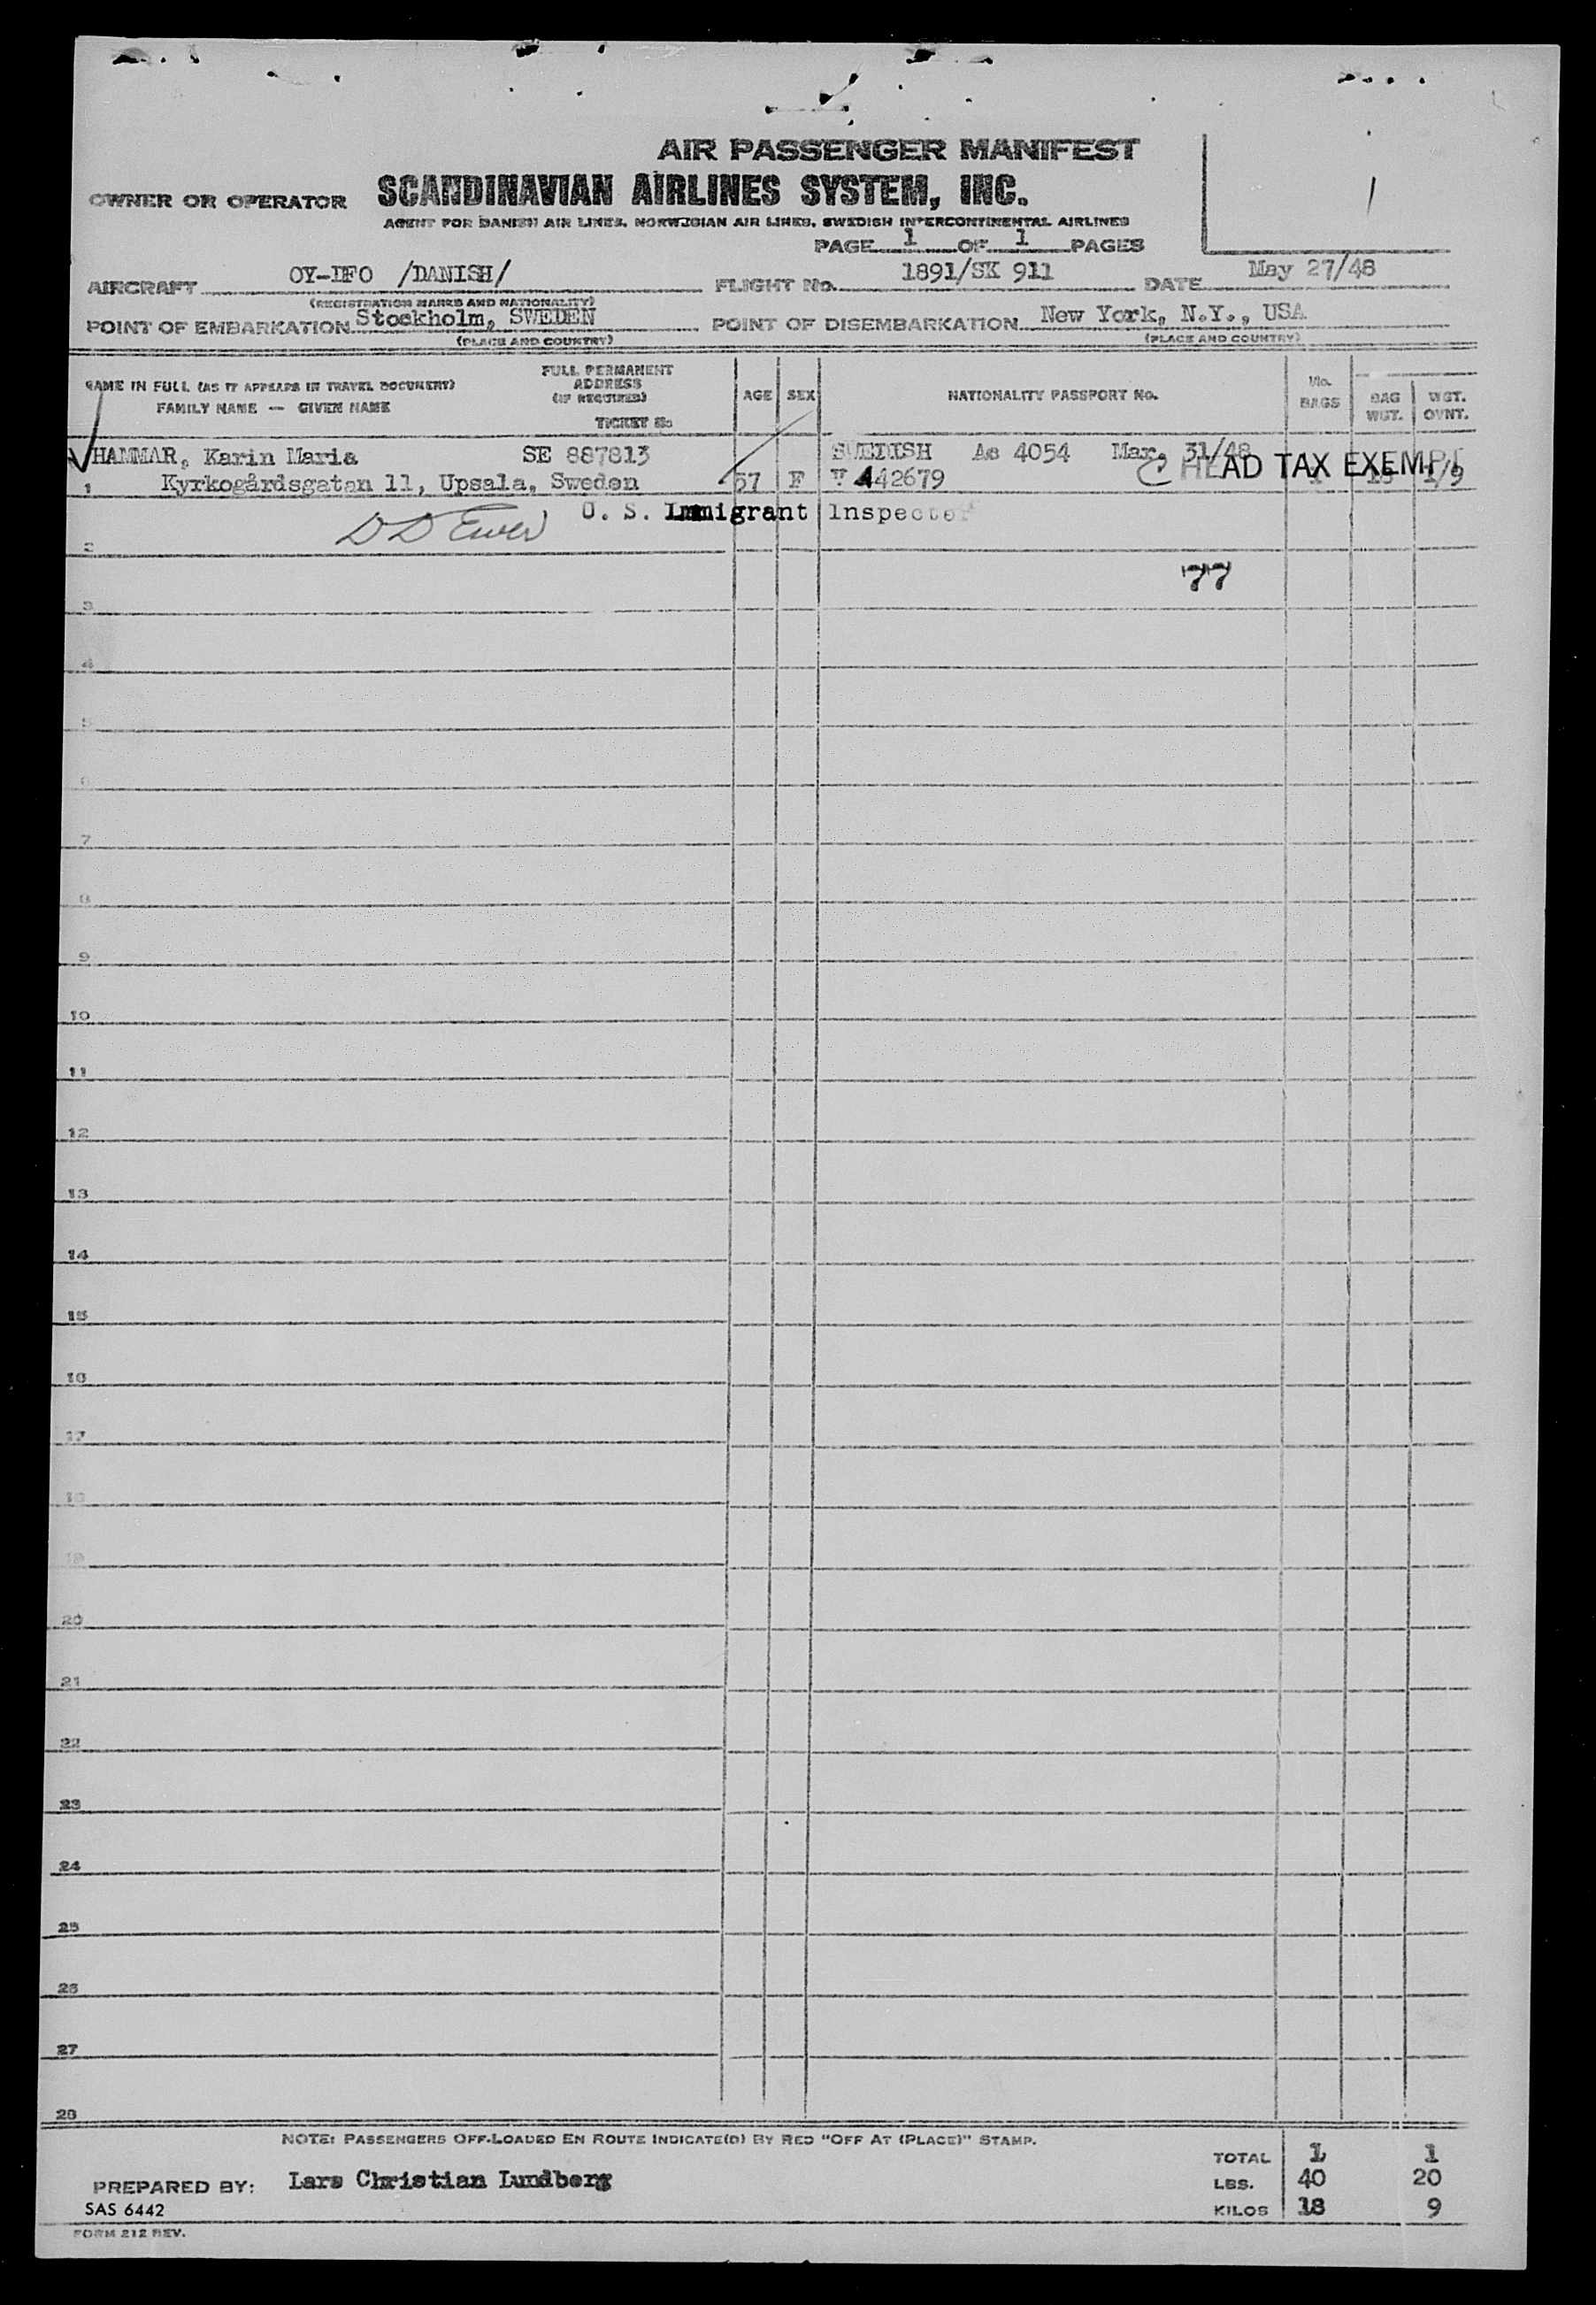 AIR PASSENGER MANIFEST
OWNER OR OPERATOR SCANDINAVIAN AIRLINES SYSTEM, INC.
AGENT FOR DANISH AIR LINES, NORWEGIAN AIR LINES, SWEDISH INTERCONTINENTAL AIRLINES
1
PAGE 1 OF 1 PAGES
AIRCRAFT OY-DFO /DANISH/ FLIGHT No. 1891/SK 911 DATE May 27/48
(REGISTRATION MARKS AND NATIONALITY)
POINT OF EMBARKATION Stockholm, SWEDEN POINT OF DISEMBARKATION New York, N.Y., USA
(PLACE AND COUNTRY) (PLACE AND COUNTRY)
NAME IN FULL (AS IT APPEARS IN TRAVEL DOCUMENT)
FAMILY NAME — GIVEN NAME
FULL PERMANENT
ADDRESS
(IF REQUIRED)
TICKET No
AGE SEX NATIONALITY PASSPORT No. No. BAGS BAG WGT. WGT. OVNT.
HAMMAR, Karin Maria SE 887813 SWEDISH As 4054 Mar. 31/48
C HEAD TAX EXEMPT
1 Kyrkogårdsgatan 11, Upsala, Sweden 57 F V 442679 1 18 1/9
U. S. Immigrant Inspector
2
77
3
4
5
6
7
8
9
10
11
12
13
14
15
16
17
18
19
20
21
22
23
24
25
26
27
28
NOTE: PASSENGERS OFF-LOADED EN ROUTE INDICATE(D) BY RED "OFF AT (PLACE)" STAMP.
TOTAL 1 1
PREPARED BY: Lars Christian Lundberg LBS. 40 20
SAS 6442 KILOS 18 9
FORM 212 REV.